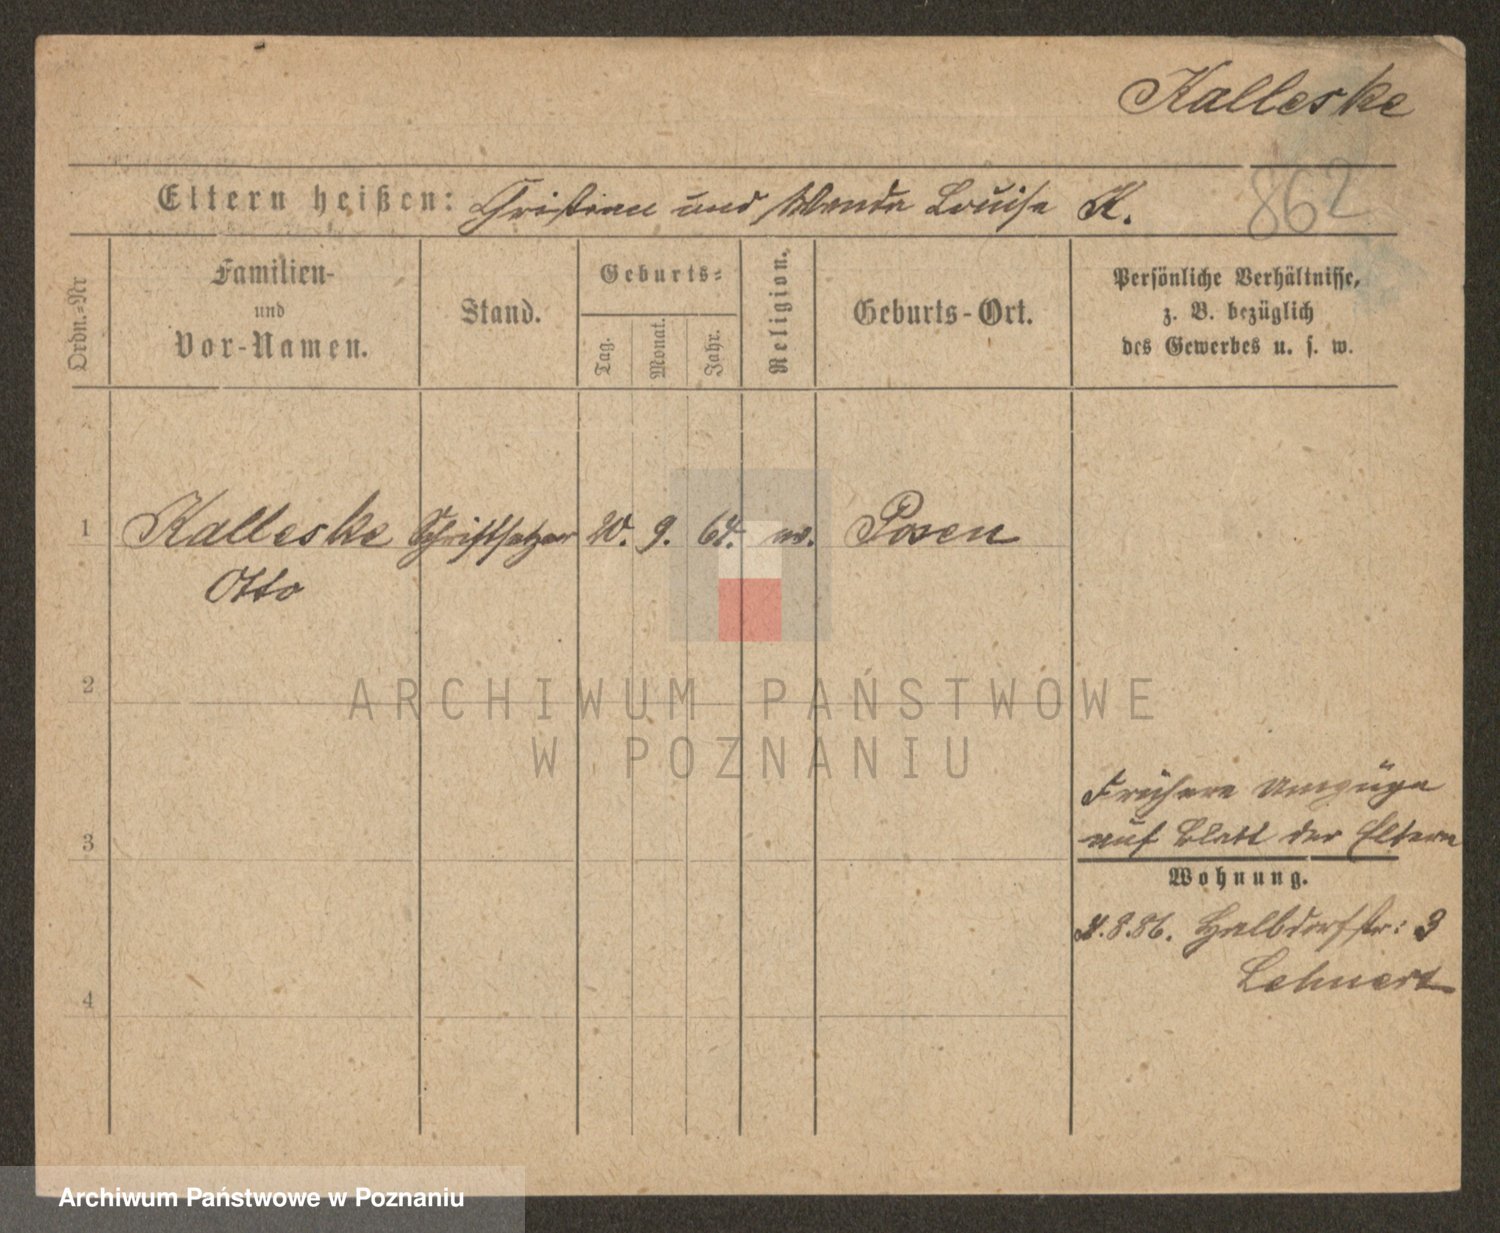 Kalleske
862
Eltern heißen: Christian und Wanda Louise K.
Ordn.=Nr
Familien-
und
Vor-Namen.
Stand.
Geburts=
Tag.
Monat.
Jahr.
Religion.
Geburts-Ort.
Persönliche Verhältnisse,
z. B. bezüglich
des Gewerbes u. s. w.
1 Kalleske Schriftsetzer 20. 9. 64. ev. Posen
Otto
2
ARCHIWUM PAŃSTWOWE
W POZNANIU
Frühere Umzüge
auf Blatt der Eltern
3
Wohnung.
8.86. Halbdorfstr: 3
Lehnert
4
Archiwum Państwowe w Poznaniu